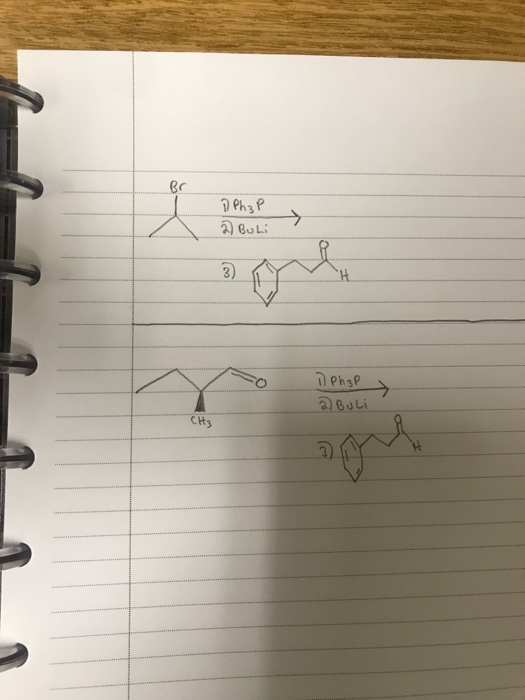 Br
1) Ph3P
2) BuLi
3)
O
H
O
CH3
1) Ph3P
2) BuLi
3)
O
H